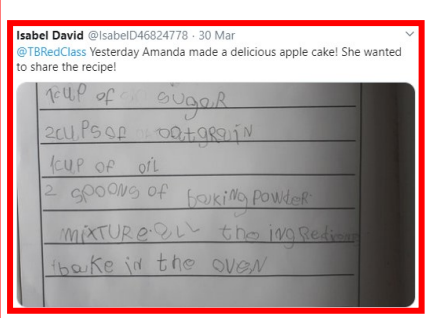 Isabel David @IsabelD46824778 · 30 Mar
@TBRedClass Yesterday Amanda made a delicious apple cake! She wanted
to share the recipe!
1cup of sugar
2cups of oatgrain
1cup of oil
2 spoons of baking powder
mixture all the ingredients
bake in the oven